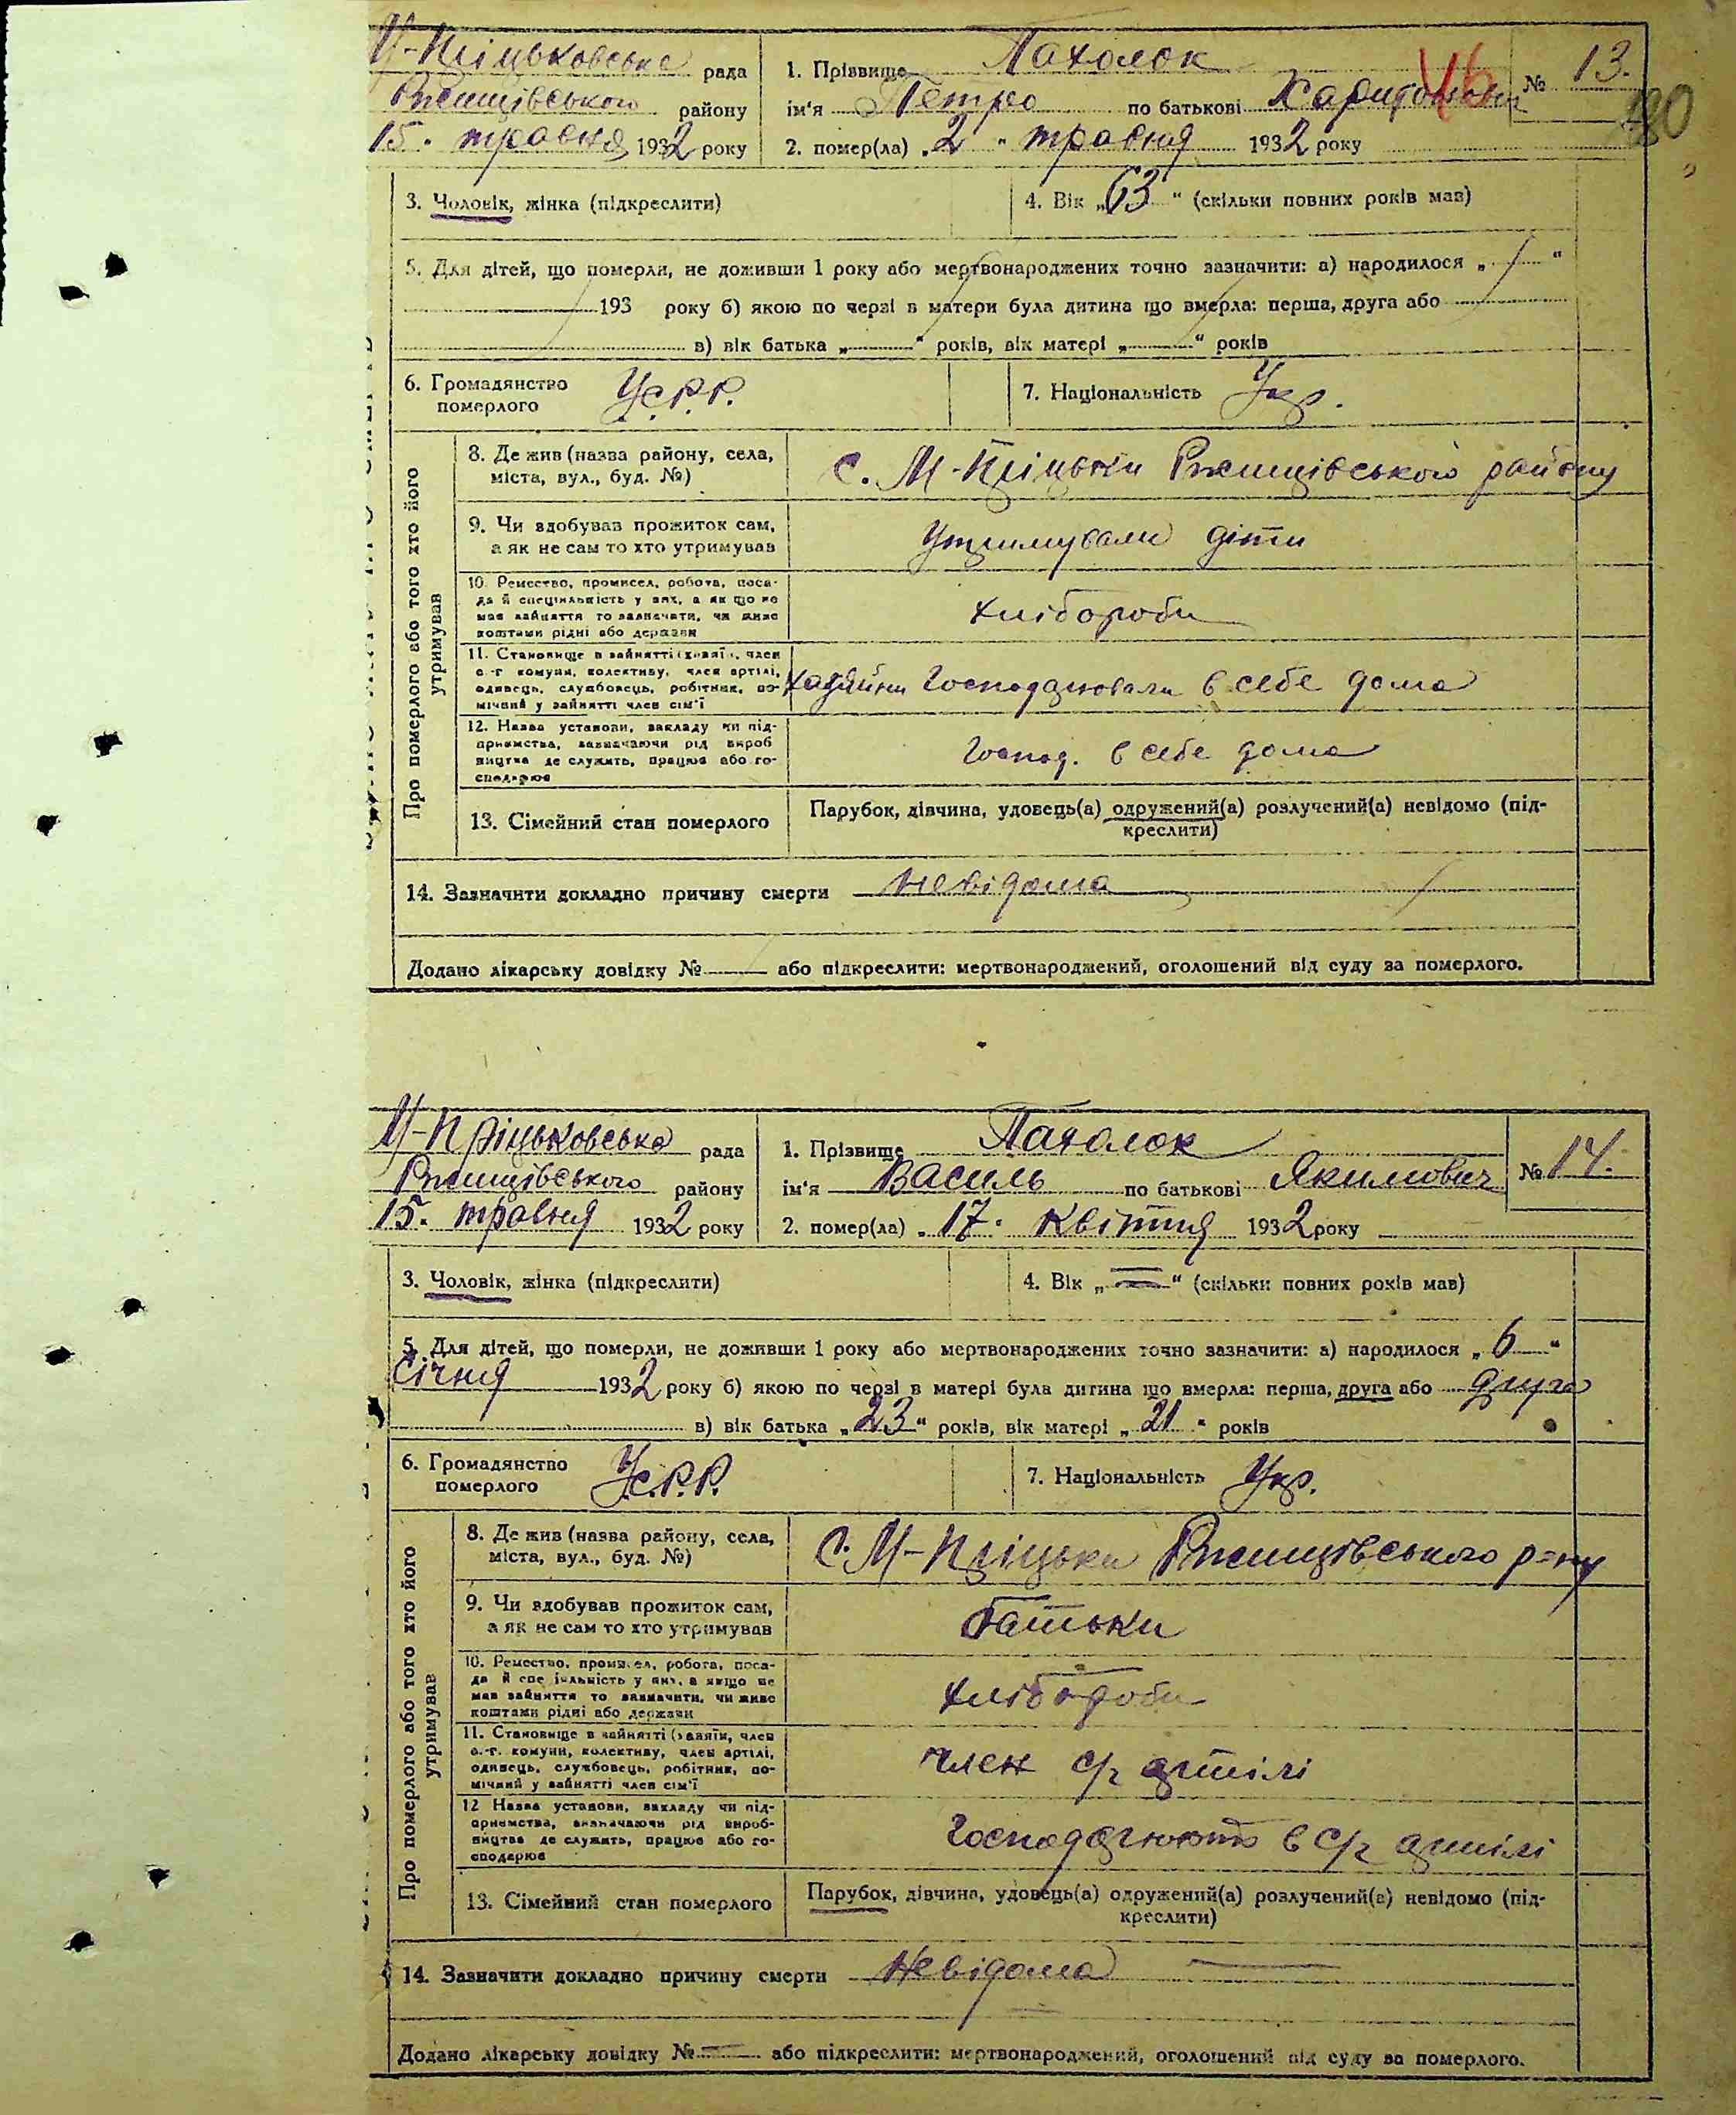 М-Пріцьковська рада
Ржищівського району
15. травня 1932 року
1. Прізвище Пахолок
ім'я Петро по батькові Харитонович
2. помер(ла) „2" травня 1932 року
№ 13.
46
3. Чоловік, жінка (підкреслити)
4. Вік „63" (скільки повних років мав)
5. Для дітей, що померли, не доживши 1 року або мертвонароджених точно зазначити: а) народилося „ "
193 року б) якою по черзі в матери була дитина що вмерла: перша, друга або
в) вік батька „ " років, вік матері „ " років
6. Громадянство
померлого
У.С.Р.Р.
7. Національність Укр.
Про померлого або того хто його
утримував
8. Де жив (назва району, села,
міста, вул., буд. №)
с. М-Пріцьки Ржищівського району
9. Чи здобував прожиток сам,
а як не сам то хто утримував
Утримували діти
10. Ремество, промисел, робота, поса-
да й спеціяльність у них, а як що не
мав зайняття то зазначити, чи живе
коштами рідні або держави
Хлібороби
11. Становище в зайнятті (хазяїн, член
с.-г комуни, колективу, член артілі,
одинець, службовець, робітник, по-
мічний у зайнятті член сім'ї
Господарювали в себе дома
12. Назва установи, закладу чи під-
приємства, зазначаючи рід вироб
ництва де служить, працює або го-
сподарює
Господ. в себе дома
13. Сімейний стан померлого
Парубок, дівчина, удовець(а) одружений(а) розлучений(а) невідомо (під-
креслити)
14. Зазначити докладно причину смерти невідома
Додано лікарську довідку № або підкреслити: мертвонароджений, оголошений від суду за померлого.
М-Пріцьковська рада
Ржищівського району
15. травня 1932 року
1. Прізвище Пахолок
ім'я Василь по батькові Якимович
2. помер(ла) „17. квітня 1932 року
№ 14.
3. Чоловік, жінка (підкреслити)
4. Вік „ " (скільки повних років мав)
5. Для дітей, що померли, не доживши 1 року або мертвонароджених точно зазначити: а) народилося „6"
січня 1932 року б) якою по черзі в матері була дитина що вмерла: перша, друга або друга
в) вік батька „23" років, вік матері „21" років
6. Громадянство
померлого
У.С.Р.Р.
7. Національність Укр.
Про померлого або того хто його
утримував
8. Де жив (назва району, села,
міста, вул., буд. №)
С. М-Пріцьки Ржищівського р-ну
9. Чи здобував прожиток сам,
а як не сам то хто утримував
Батьки
10. Ремество, промисел, робота, поса-
да й спеціяльність у них, а якщо не
мав зайняття то зазначити, чи живе
коштами рідні або держави
Хлібороби
11. Становище в зайнятті (хазяїн, член
с.-г. комуни, колективу, член артілі,
одинець, службовець, робітник, по-
мічний у зайнятті член сім'ї
член с/г артілі
12 Назва установи, закладу чи під-
приємства, зазначаючи рід вироб-
ництва де служить, працює або го-
сподарює
Господарюють в с/г артілі
13. Сімейний стан померлого
Парубок, дівчина, удовець(а) одружений(а) розлучений(а) невідомо (під-
креслити)
14. Зазначити докладно причину смерти Невідома
Додано лікарську довідку № або підкреслити: мертвонароджений, оголошений від суду за померлого.